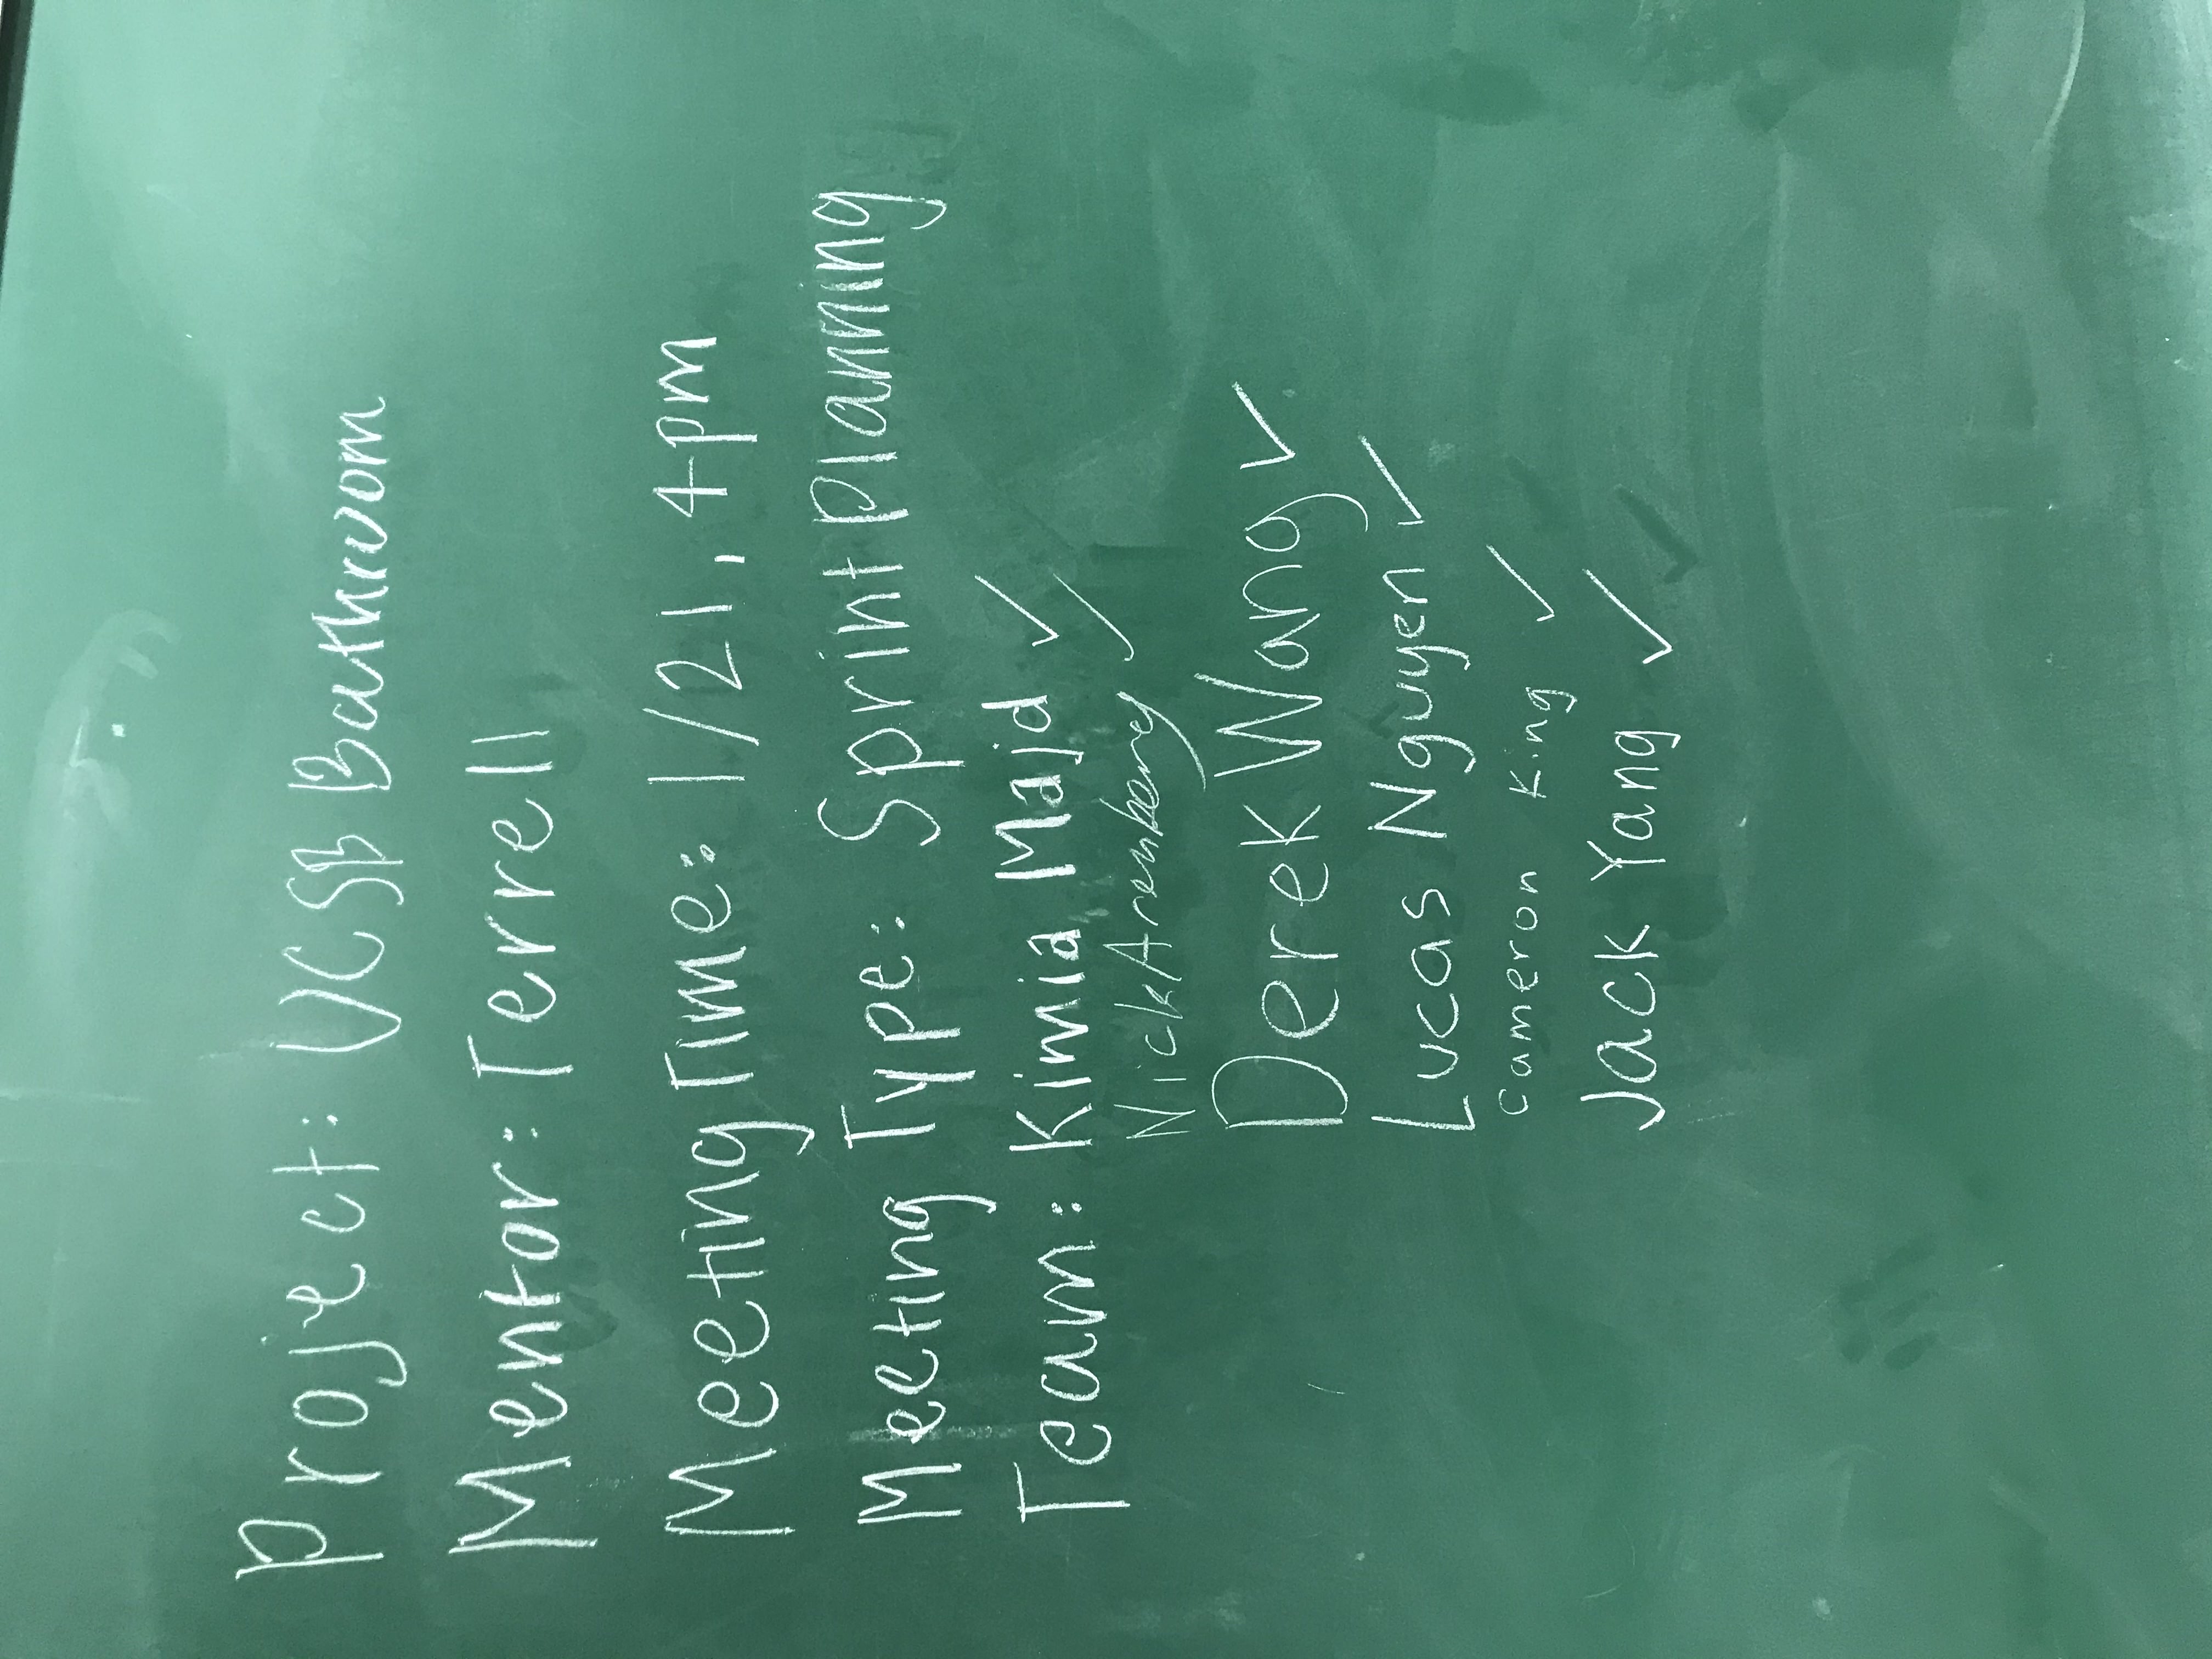 Project: UCSB Bathroom
Mentor: Terrell
Meeting Time: 1/21, 4pm
Meeting Type: Sprint Planning
Team: Kimia Majd ✓
Nick Arenberg ✓
Derek Wang ✓
Lucas Nguyen ✓
Cameron King ✓
Jack Yang ✓